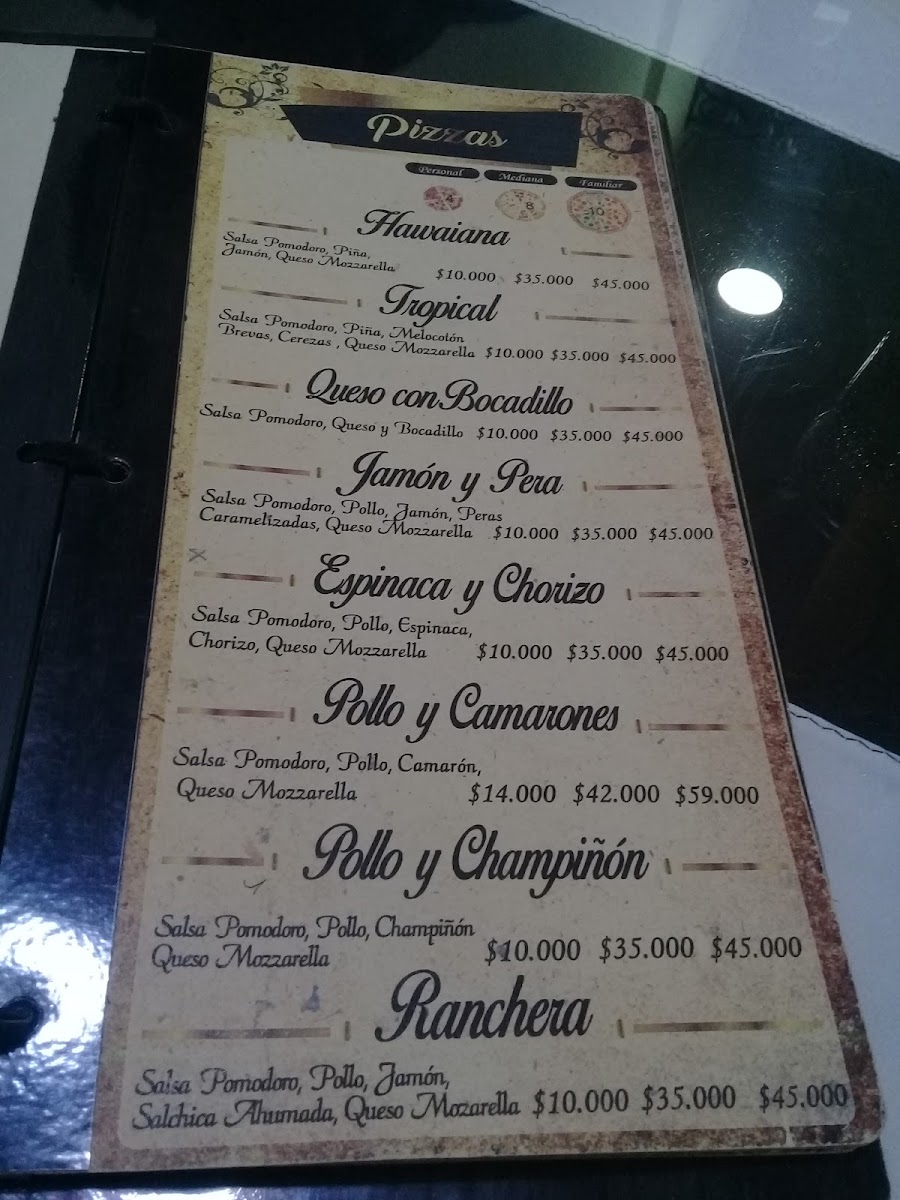 Pizzas
Personal Mediana Familiar
4 8 10
Hawaiana
Salsa Pomodoro, Piña,
Jamón, Queso Mozzarella $10.000 $35.000 $45.000
Tropical
Salsa Pomodoro, Piña, Melocotón
Brevas, Cerezas , Queso Mozzarella $10.000 $35.000 $45.000
Queso con Bocadillo
Salsa Pomodoro, Queso y Bocadillo $10.000 $35.000 $45.000
Jamón y Pera
Salsa Pomodoro, Pollo, Jamón, Peras
Caramelizadas, Queso Mozzarella $10.000 $35.000 $45.000
Espinaca y Chorizo
Salsa Pomodoro, Pollo, Espinaca,
Chorizo, Queso Mozzarella $10.000 $35.000 $45.000
Pollo y Camarones
Salsa Pomodoro, Pollo, Camarón,
Queso Mozzarella $14.000 $42.000 $59.000
Pollo y Champiñón
Salsa Pomodoro, Pollo, Champiñón
Queso Mozzarella $10.000 $35.000 $45.000
Ranchera
Salsa Pomodoro, Pollo, Jamón,
Salchica Ahumada, Queso Mozarella $10.000 $35.000 $45.000